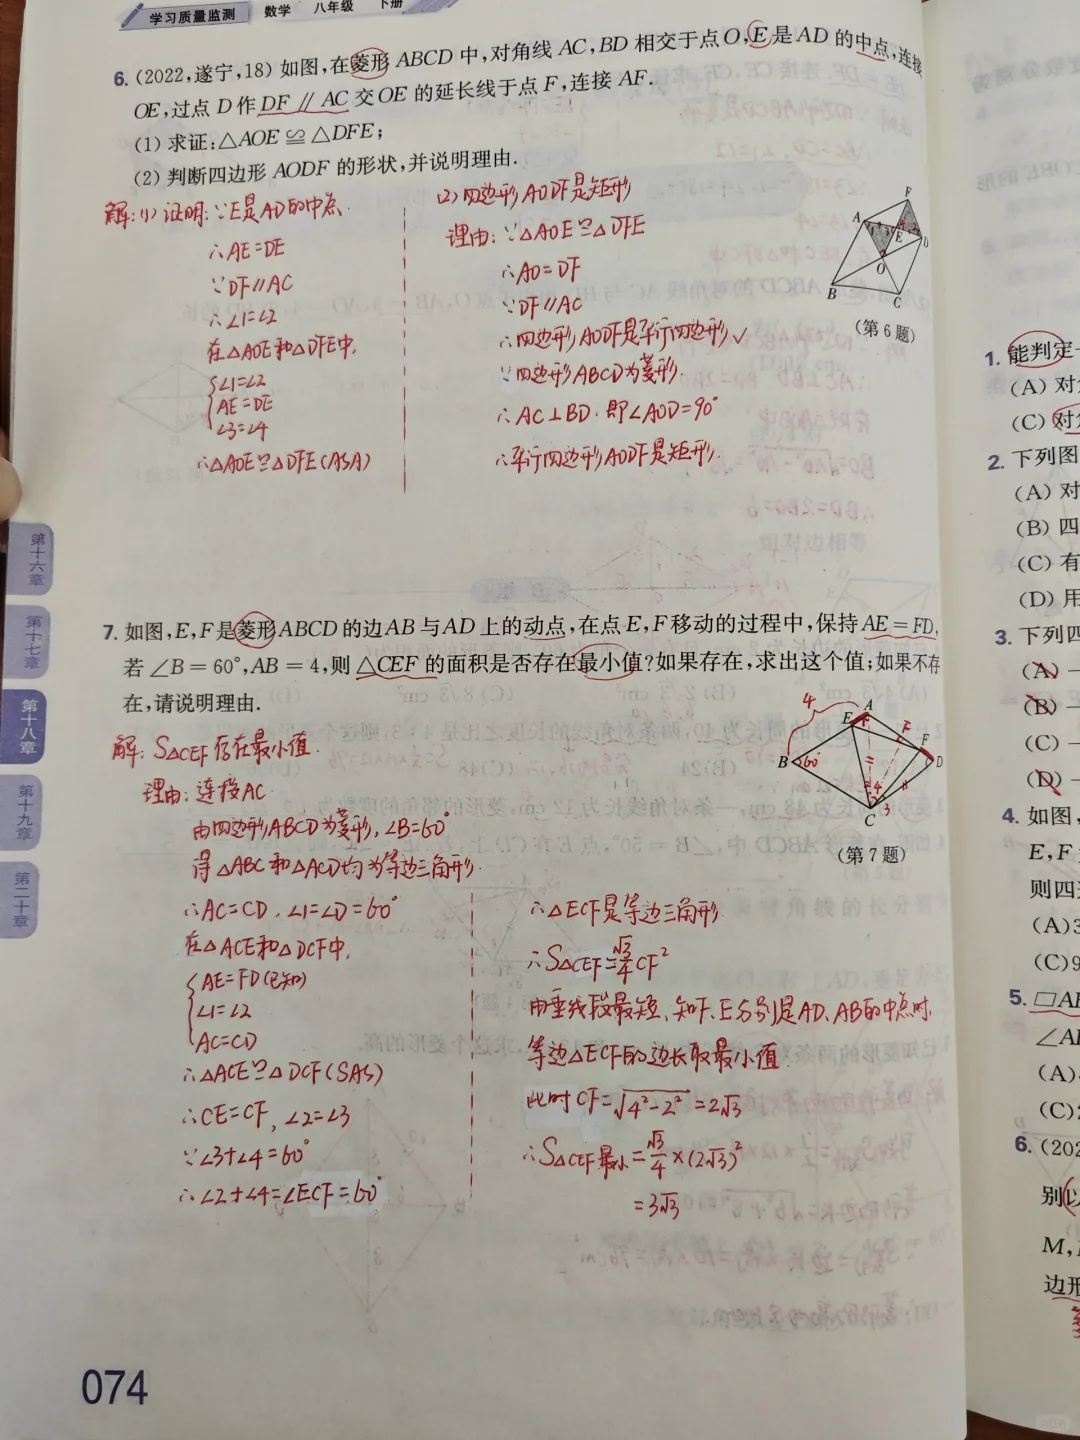 学习质量监测 数学 八年级 下册
6. (2022,遂宁,18) 如图,在菱形 ABCD 中,对角线 AC,BD 相交于点O,E是 AD 的中点,连接
OE,过点 D 作 DF∥AC 交OE 的延长线于点 F,连接 AF.
(1) 求证:△AOE≌△DFE;
(2) 判断四边形 AODF 的形状,并说明理由.
解:(1) 证明:∵E是AD的中点.
∴AE=DE
∵DF∥AC
∴∠1=∠2
在△AOE和△DFE中,
∠1=∠2
AE=DE
∠3=∠4
∴△AOE≌△DFE(ASA)
(2)四边形AODF是矩形
理由:∵△AOE≌△DFE
∴AO=DF
∵DF∥AC
∴四边形AODF是平行四边形✓
∵四边形ABCD为菱形.
∴AC⊥BD.即∠AOD=90°
∴平行四边形AODF是矩形.
F
A
E
D
O
B
C
(第6题)
7. 如图,E,F是菱形ABCD的边AB与AD上的动点,在点E,F移动的过程中,保持AE=FD,
若∠B=60°,AB=4,则△CEF的面积是否存在最小值?如果存在,求出这个值;如果不存
在,请说明理由.
解:S△CEF存在最小值.
理由:连接AC
由四边形ABCD为菱形,∠B=60°
得△ABC和△ACD均为等边三角形.
∴AC=CD.∠1=∠D=60°
在△ACE和△DCF中,
AE=FD(已知)
∠1=∠2
AC=CD
∴△ACE≌△DCF(SAS)
∴CE=CF,∠2=∠3
∵∠3+∠4=60°
∴∠2+∠4=∠ECF=60°
∴△ECF是等边三角形.
∴S△CEF=√3/4CF²
由垂线段最短,知F、E分别是AD、AB的中点时,
等边△ECF的边长取最小值.
此时CF=√4²-2²=2√3
∴S△CEF最小=√3/4×(2√3)²
=3√3
4
A
E
F
B
60°
D
4
3
C
(第7题)
第十六章
第十七章
第十八章
第十九章
第二十章
074
1. 能判定
(A) 对
(C) 对
2. 下列图
(A) 对
(B) 四
(C) 有
(D) 用
3. 下列四
(A) 一
(B) 一
(C) 一
(D) 一
4. 如图,
E,F
则四
(A)3
(C)9
5. □A
∠A
(A)
(C)2
6. (202
别以
M,
边形